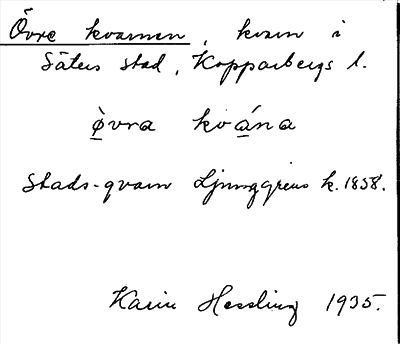 Övre kvarnen, kvarn i
Säters stad, Kopparbergs l.
ø̀vra kvána
Stads-qvarn Ljunggrens k. 1858.
Karin Hessling 1935.